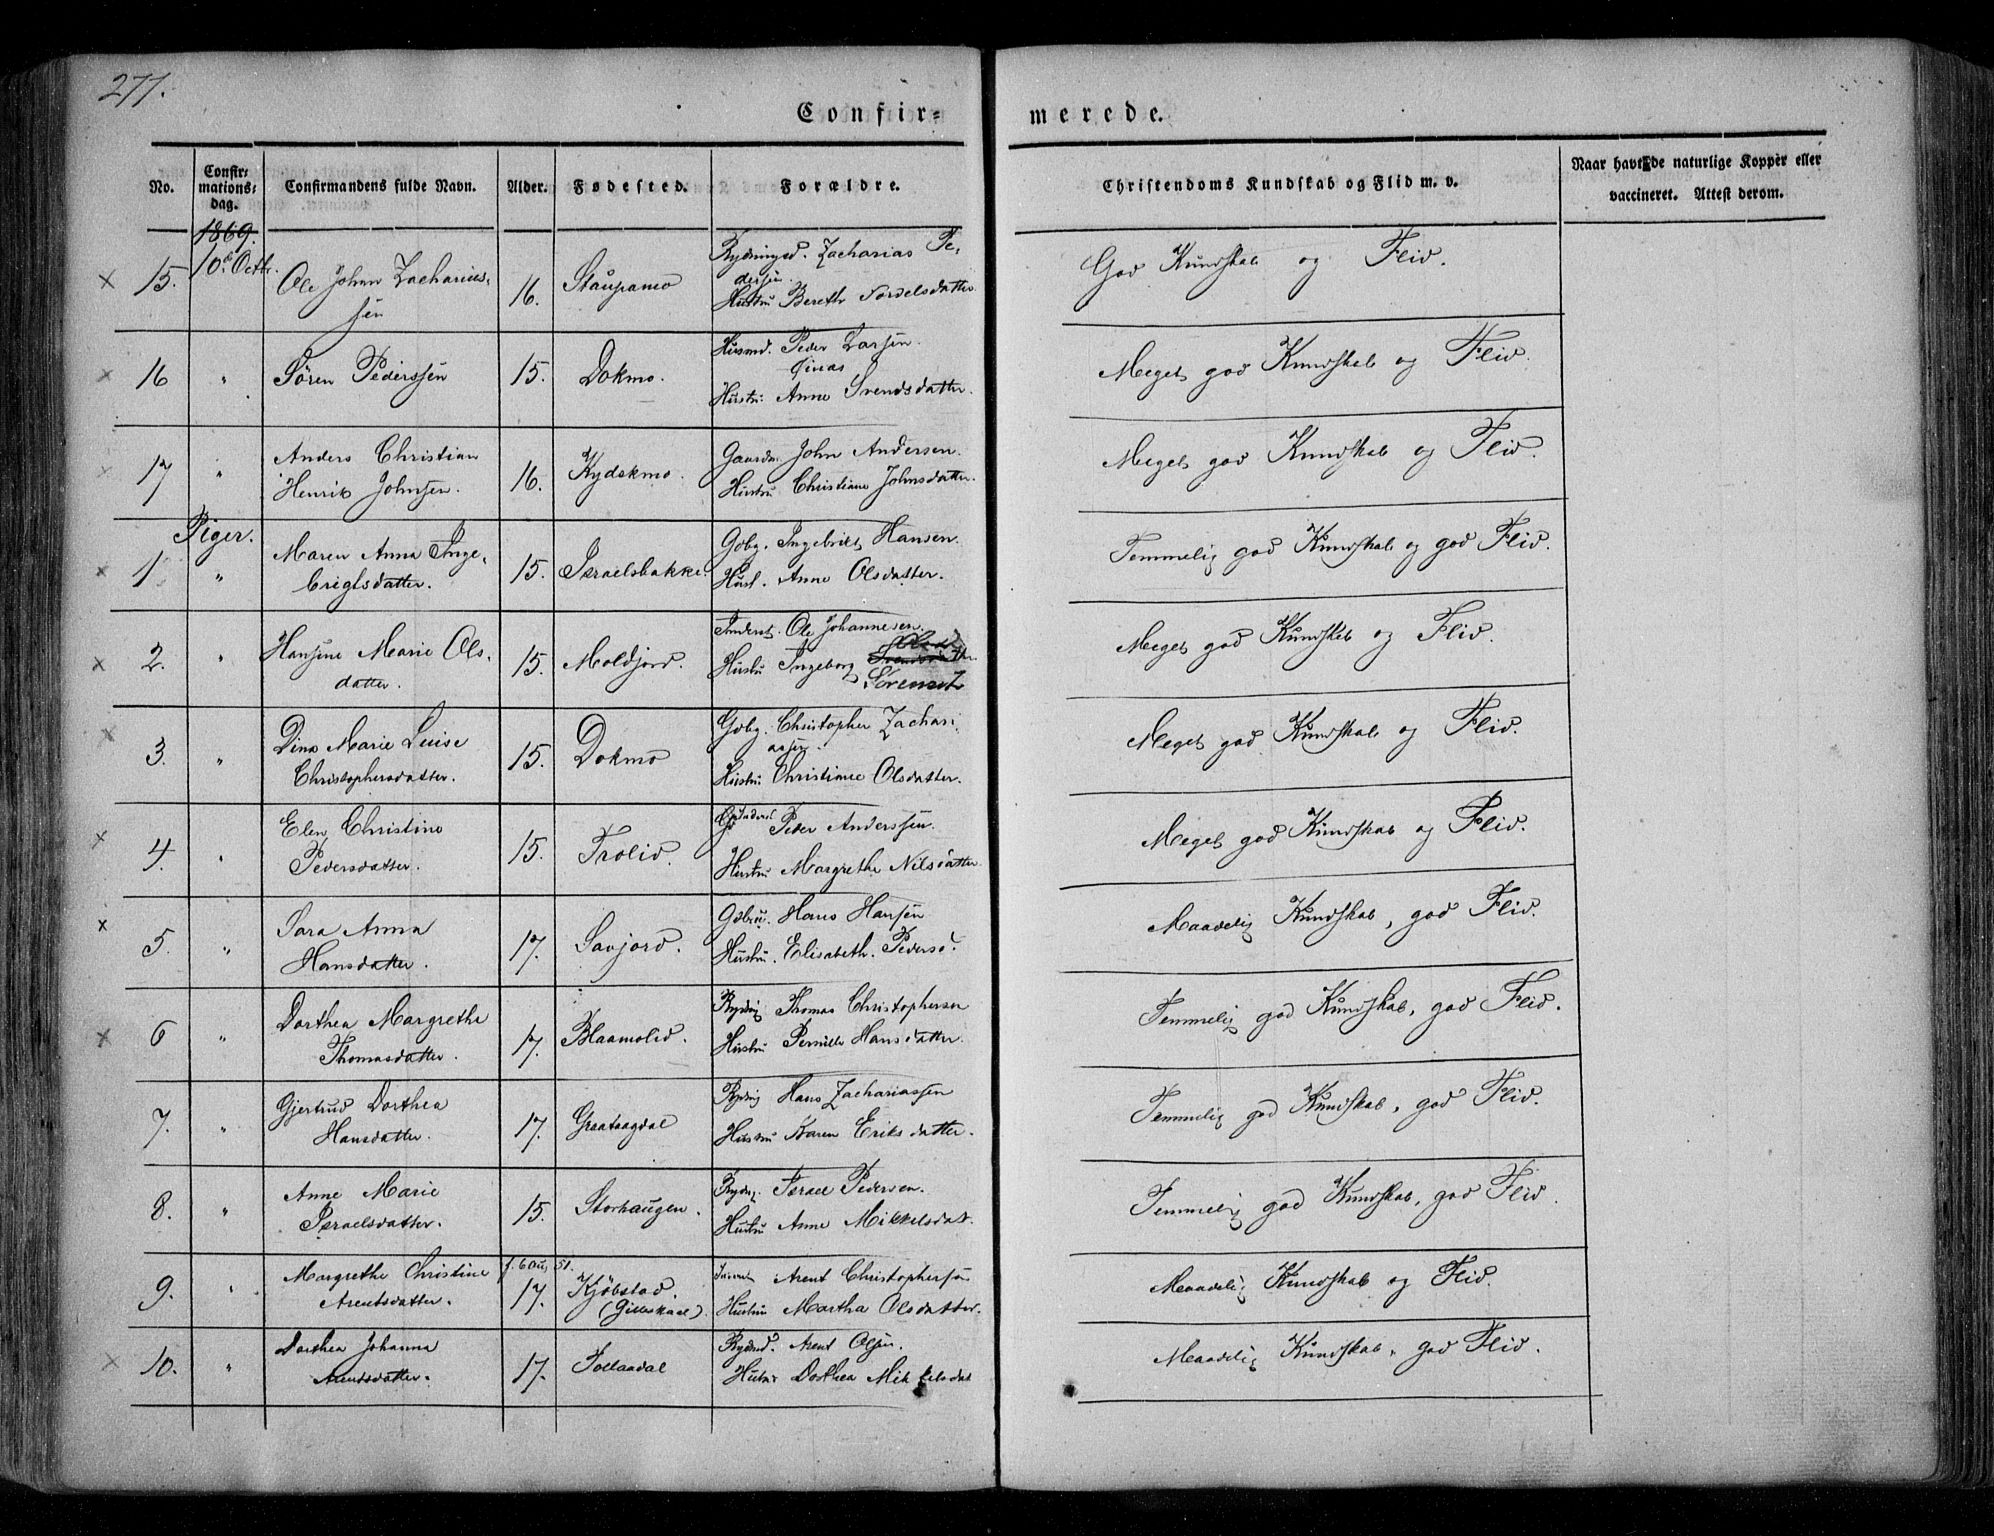 277.
Confir- merede.
No. Confir-mations-dag. Confirmandens fulde Navn. Alder. Fødested. Forældre. Christendoms Kundskab og Flid m. v. Naar havt de naturlige Kopper eller vaccineret. Attest derom.
1869.
15. 10. Octbr. Ole Johan Zacharias- 16. Staupamo Rydningsd. Zacharias Pe- God Kundskab og Flid.
sen dersen
Hustru Bereth Tordelsdatter
16 " Sören Pederssen 15. Dokmo. Husmd. Peder Larsen Meget god Kundskab og Flid.
Hustru Anne Svendsdatter.
17 " Anders Christian 16. Rydskmo. Gaardm. John Andersen. Meget god Kundskab og Flid.
Henrik Johnsen. Hustru Christiane Johnsdatter.
Piger.
1 " Maren Anna Inge- 15. Israelsbakke. Gdbg. Ingebrikt Hansen. Temmelig god Kundskab og god Flid.
brigtsdatter. Hust. Anne Olsdatter.
2. " Hansine Marie Ols- 15. Moldjord. Inderst. Ole Johannesen. Meget god Kundskab og Flid.
datter. Hustru Ingeborg Sörensd
3. " Dina Marie Luise 15. Dokmo Gdbg. Christopher Zachari- Meget god Kundskab og Flid.
Christophersdatter. assen.
Hustru Christiane Olsdatter.
4. " Elen Christine 15. Trolid. Inderst Peder Anderssen. Meget god Kundskab og Flid.
Pedersdatter. Hustru Margrethe Nilsdatter.
5. " Sara Anna 17. Savjord. Gdbru. Hans Hansen Maadelig Kundskab, god Flid.
Hansdatter. Hustru. Elisabeth. Pedersd.
6 " Dorthea Margrethe 17. Blaamolid. Rydnig Thomas Christophersen Temmelig god Kundskab, god Flid.
Thomasdatter. Hustru Pernille Hansdatter.
7. " Gjertrud Dorthea 17. Graataagdal Rydnig Hans Zachariassen Temmelig god Kundskab, god Flid.
Hansdatter. Hustru Karen Eriksdatter.
8. " Anne Marie 15. Storhaugen. Rydng. Israel Pedersen. Temmelig god Kundskab, god Flid.
Israelsdatter. Hustru Anne Mikkelsdat.
f. 6 Aug 51.
9. " Margrethe Christine 17. Kjöbstad. Arent Christophersen Maadelig Kundskab og Flid.
Arentsdatter. (Gilleskaal). Hustru Martha Olsdatter.
10. " Dorthea Johanna 17. Tollaadal Rydnd. Arent Olsen. Maadelig Kundskab, god Flid.
Arentsdatter. Hustru Dorthea Mikkelsdat